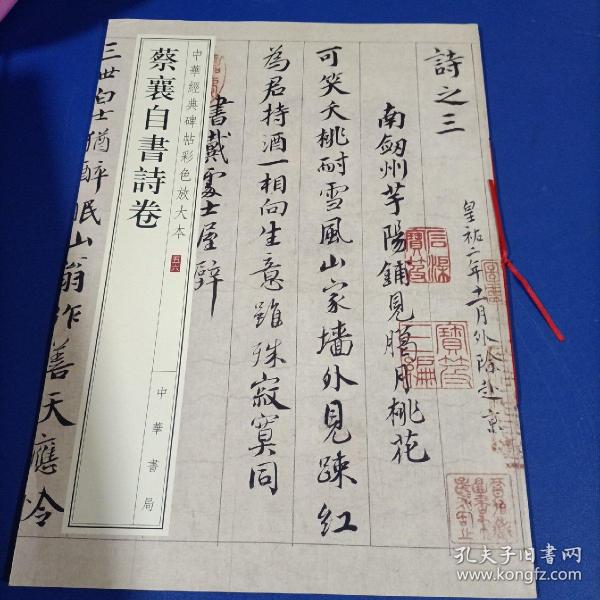 詩之三
皇祐二年十一月外除赴京
南劔州芋陽鋪見臘月桃花
可笑夭桃耐雪風山家墻外見踈紅
為君持酒一相向生意雖殊寂寞同
書戴處士屋壁
三世白士猶醉眠山翁作善天應冷
中華經典碑帖彩色放大本
五六
蔡襄自書詩卷
中華書局
孔夫子旧书网
www.kongfz.com